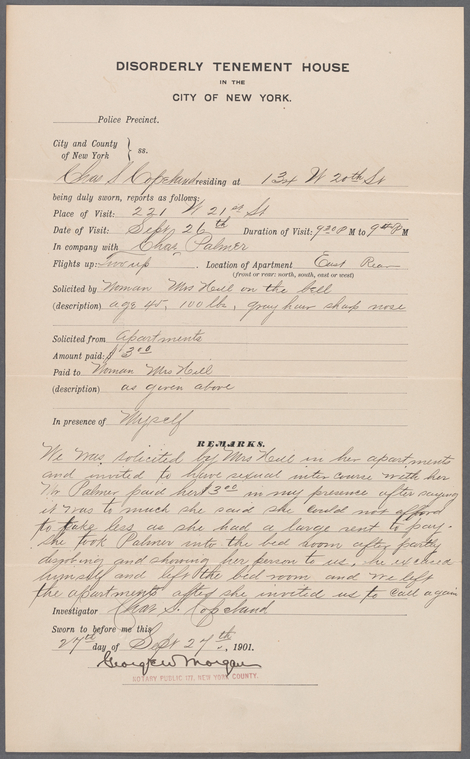 DISORDERLY TENEMENT HOUSE
IN THE
CITY OF NEW YORK.
Police Precinct.
City and County
of New York } ss.
Chas S. Copeland residing at 134 W 20th St
being duly sworn, reports as follows:
Place of Visit: 221 W 21st St
Date of Visit: Sept 26th Duration of Visit: 9 20 P M to 9 40 P M
In company with Chas. Palmer
Flights up: Two up Location of Apartment East Rear
(front or rear: north, south, east or west)
Solicited by Woman Mrs Hill on the bell
(description) age 45, 100 lbs, gray hair sharp nose
Solicited from Apartments
Amount paid: $3.00
Paid to Woman Mrs Hill
(description) as given above
In presence of Myself
REMARKS.
We was solicited by Mrs Hill in her apartments
and invited to have sexual inter course with her
Mr Palmer paid her $3.00 in my presence after saying
it was to much she said she could not afford
to take less as she had a large rent to pay.
she took Palmer into the bed room after partly
disrobing and showing her person to us, he excused
hymself and left the bed room and we left
the apartments after she invited us to call again
Investigator Chas. S. Copeland
Sworn to before me this
27th day of Sept 27th, 1901.
George W Morgan
NOTARY PUBLIC NEW YORK COUNTY.